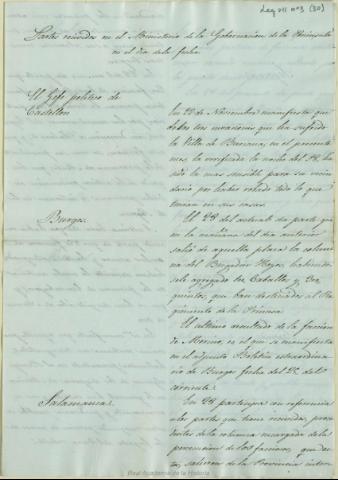 Leg VII nº 3 (30)
Partes recividos en el Ministerio de la Gobernacion de la Peninsula
en el dia de la fecha
El Gefe politico de
Castellon
En 22 de Noviembre manifiesta que
de las tres invasiones que ha sufrido
la Villa de Burriana, en el presente
mes, la verificada la noche del 18, ha
sido la mas sensible para su vecin
dario por haber robado todo lo que
tenian en sus casas.
Burgos
El 28 del actual da parte que
en la mañana del dia anterior
salió de aquella plaza la colum
na del Brigadier Hoyos, habiendo
sele agregado Caballos, y
quintos, que van destinados al Re
gimiento de la Princesa.
El ultimo resultado de la faccion
de Merino, es el que se manifiesta
en el adjunto Boletin estraordina
rio de Burgos fecha del 28 del
corriente.
Salamanca
En 28 participa con referencia
a los partes que tiene recividos, proce
dentes de la columna encargada de la
persecucion de los facciosos, que
salieron de la Provincia
Real Academia de la Historia